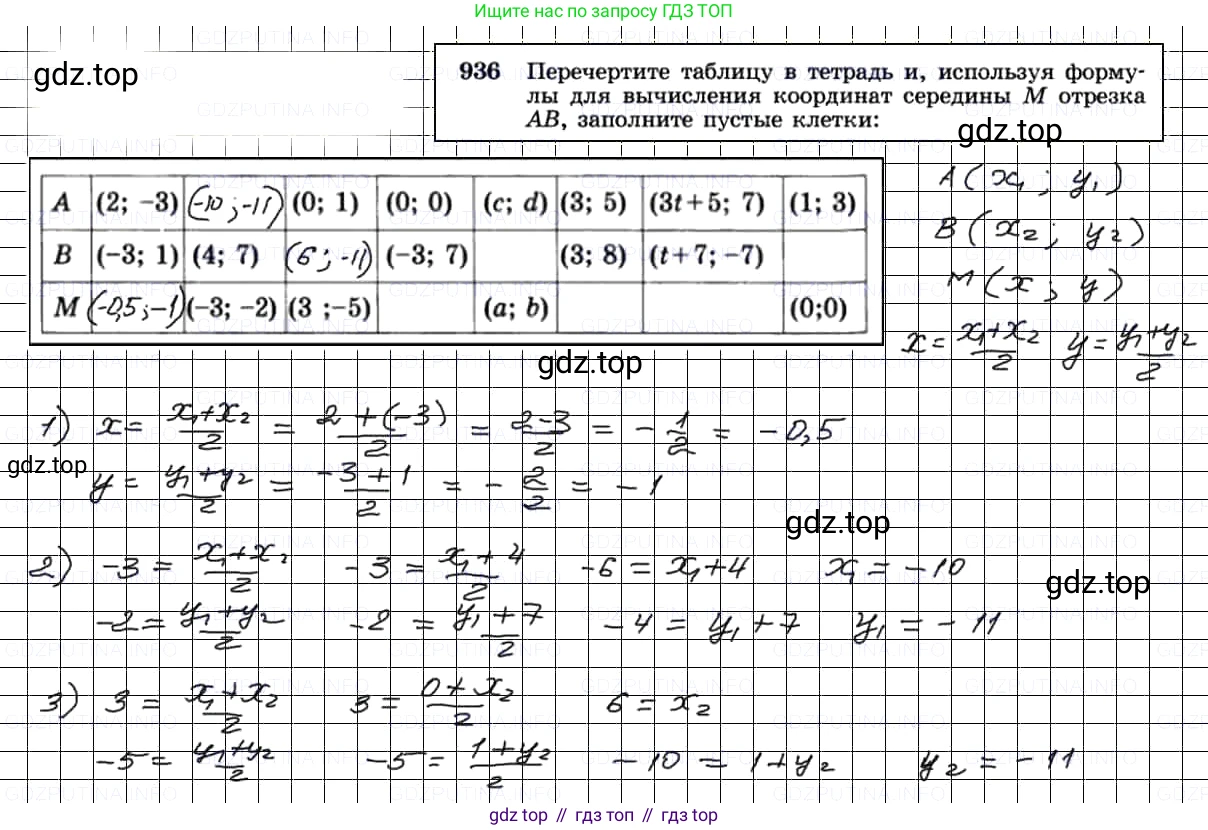 Ищите нас по запросу ГДЗ ТОП
gdz.top
936 Перечертите таблицу в тетрадь и, используя форму-
лы для вычисления координат середины M отрезка
AB, заполните пустые клетки:
gdz.top
A (2; −3) (−10 ; −11) (0; 1) (0; 0) (c; d) (3; 5) (3t+5; 7) (1; 3)
B (−3; 1) (4; 7) (6 ; −11) (−3; 7) (3; 8) (t+7; −7)
M (−0,5 ; −1) (−3; −2) (3 ;−5) (a; b) (0;0)
A ( x₁ ; y₁ )
B ( x₂ ; y₂ )
M ( x ; y )
x = x₁+x₂/2 y = y₁+y₂/2
gdz.top
1) x = x₁+x₂/2 = 2+(−3)/2 = 2−3/2 = −1/2 = −0,5
gdz.top
y = y₁+y₂/2 = −3+1/2 = −2/2 = −1
gdz.top
2) −3 = x₁+x₂/2 −3 = x₁+4/2 −6 = x₁+4 x₁ = −10
gdz.top
−2 = y₁+y₂/2 −2 = y₁+7/2 −4 = y₁+7 y₁ = −11
3) 3 = x₁+x₂/2 3 = 0+x₂/2 6 = x₂
−5 = y₁+y₂/2 −5 = 1+y₂/2 −10 = 1+y₂ y₂ = −11
gdz.top // гдз топ // gdz.top